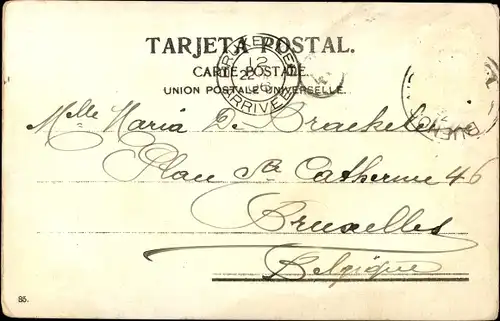 TARJETA POSTAL.
CARTE POSTALE.
UNION POSTALE UNIVERSELLE.
BRUXELLES
12
22
6
ARRIVEE
BUEN
Mlle Maria D. Braekeleer
Place Ste Catherine 46
Bruxelles
Belgique
85.